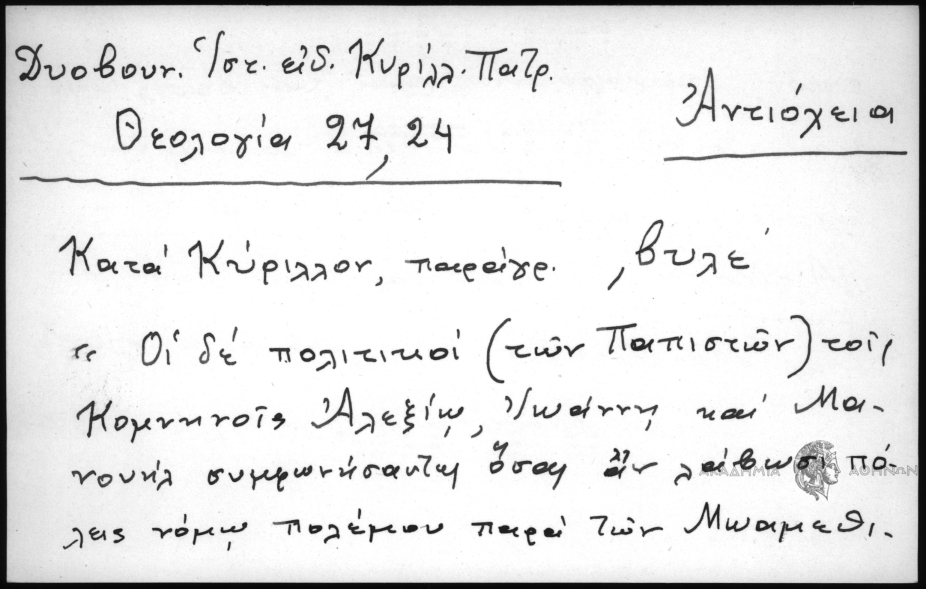 Δυοβουν. Ἱστ. εἰδ. Κυρίλλ. Πατρ.
Θεολογία 27, 24
Ἀντιόχεια
Κατά Κύριλλον, παράγρ. ͵βυλε΄
" Οἱ δέ πολιτικοί (τῶν Παπιστῶν) τοῖς
Κομνηνοῖς Ἀλεξίῳ, Ἰωάννῃ καί Μα-
νουήλ συμφωνήσαντες ὅσας ἄν λάβωσι πό-
λεις νόμῳ πολέμου παρά τῶν Μωαμεθι-
ΑΚΑΔΗΜΙΑ ΑΘΗΝΩΝ